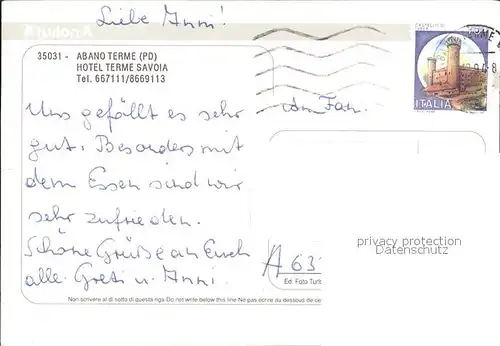 Liebe Anni!
35031 - ABANO TERME (PD)
HOTEL TERME SAVOIA
Tel. 667111/8669113
ITALIA
An Fam.
Uns gefällt es sehr
gut. Besonders mit
dem Essen sind wir
sehr zufrieden.
Schöne Grüße an Euch
alle. Greti u. Anni.
A 63
privacy protection
Datenschutz
Ed. Foto Turis
Non scrivere al di sotto di questa riga-Do not write below this line-Ne pas ecrire au dessous de ce